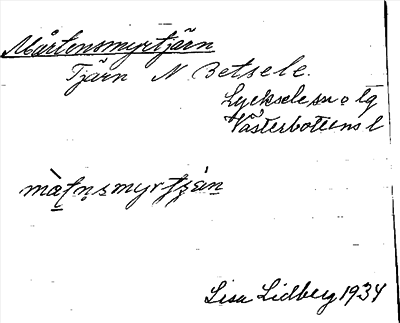 Mårtensmyrtjärn
Tjärn N. Betsele.
Lycksele sn o lg
Västerbottens l
Lisa Lidberg 1934